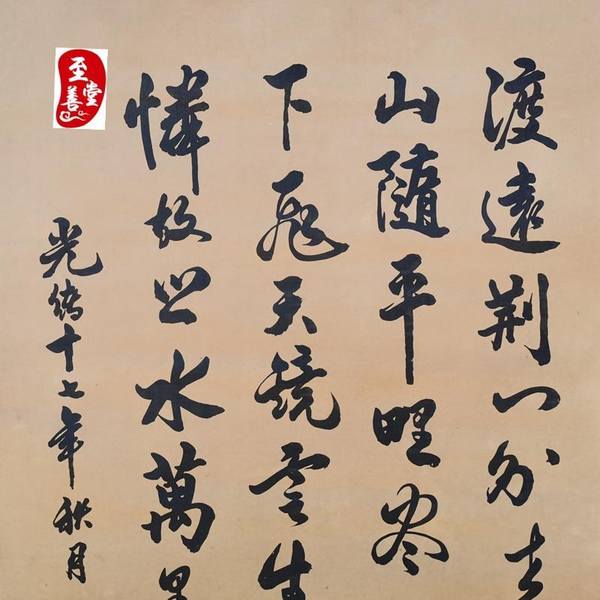 渡遠荆门外来
山隨平野尽
下飛天鏡雲生
憐故乡水萬里
光緒十七年秋月
至善堂